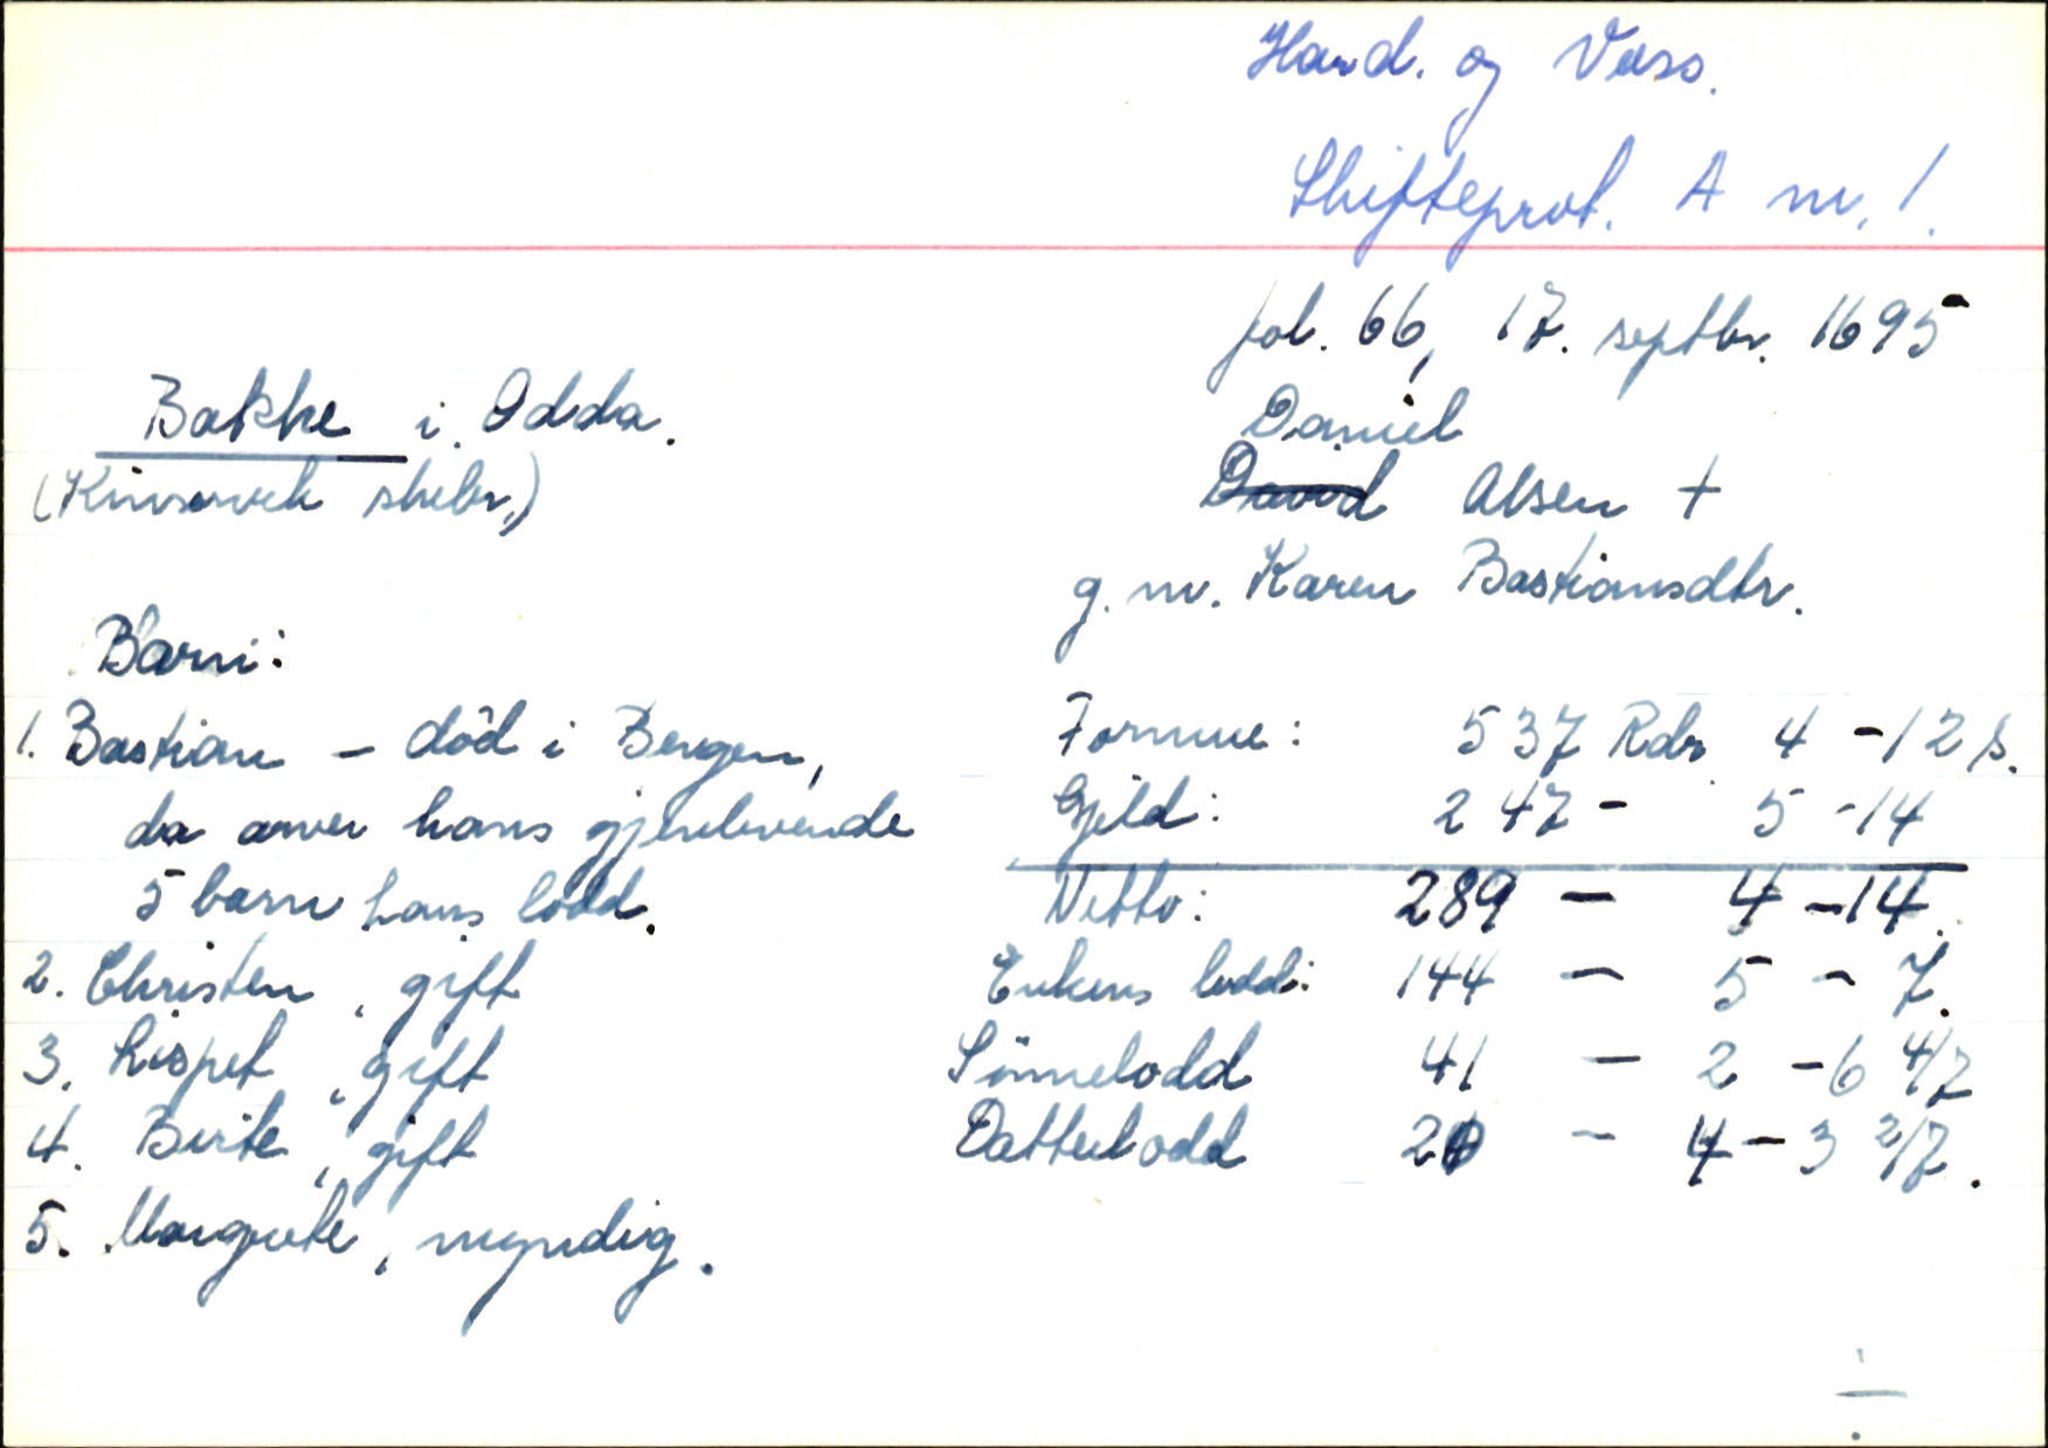 Hard. og Voss.
Skifteprot. A nr. 1.
fol. 66, 17. septbr. 1695
Bakke i Odda.
(Kinsarvik skibr.)
Daniel
David Absen †
g. m. Karen Bastiansdtr.
Barn:
1. Bastian – död i Bergen,
da arver hans gjenlevende
5 barn hans lodd.
2. Christen, gift
3. Lispet, gift
4. Birte, gift
5. Margrete, myndig.
Formue: 537 Rdr. 4 – 12 s.
Gjeld: 247 – 5 – 14
Netto: 289 – 4 – 14.
Enkens lodd: 144 – 5 – 7.
Sönnelodd 41 – 2 – 6 4/7
Datterlodd 20 – 4 – 3 2/7.
÷